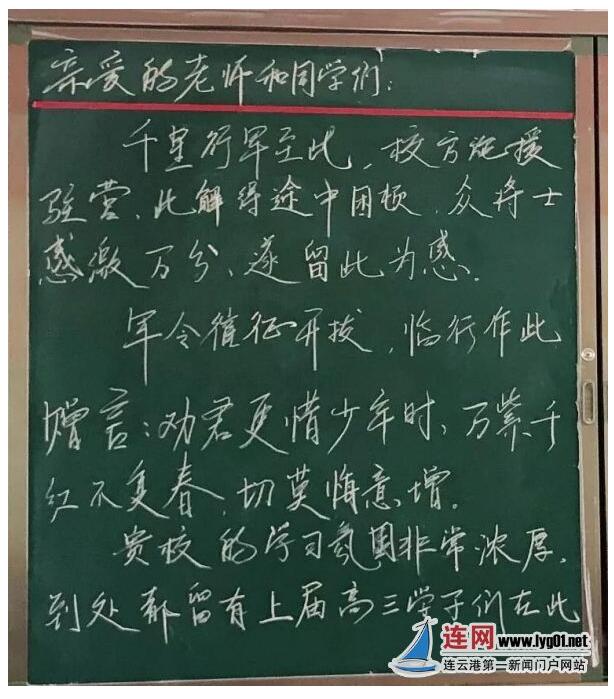 亲爱的老师和同学们：
千里行军至此，校方施援
驻营，此解得途中困顿，众将士
感激万分、遂留此为感。
军令催征开拔，临行作此
赠言：劝君更惜少年时，万紫千
红不复春，切莫悔意增。
贵校的学习氛围非常浓厚，
到处都留有上届高三学子们在此
连网 www.lyg01.net
连云港第一新闻门户网站